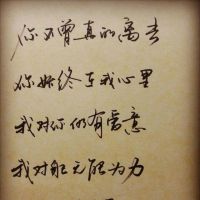 你不曾真的离去
你始终在我心里
我对你仍有爱意
我对自己无能为力